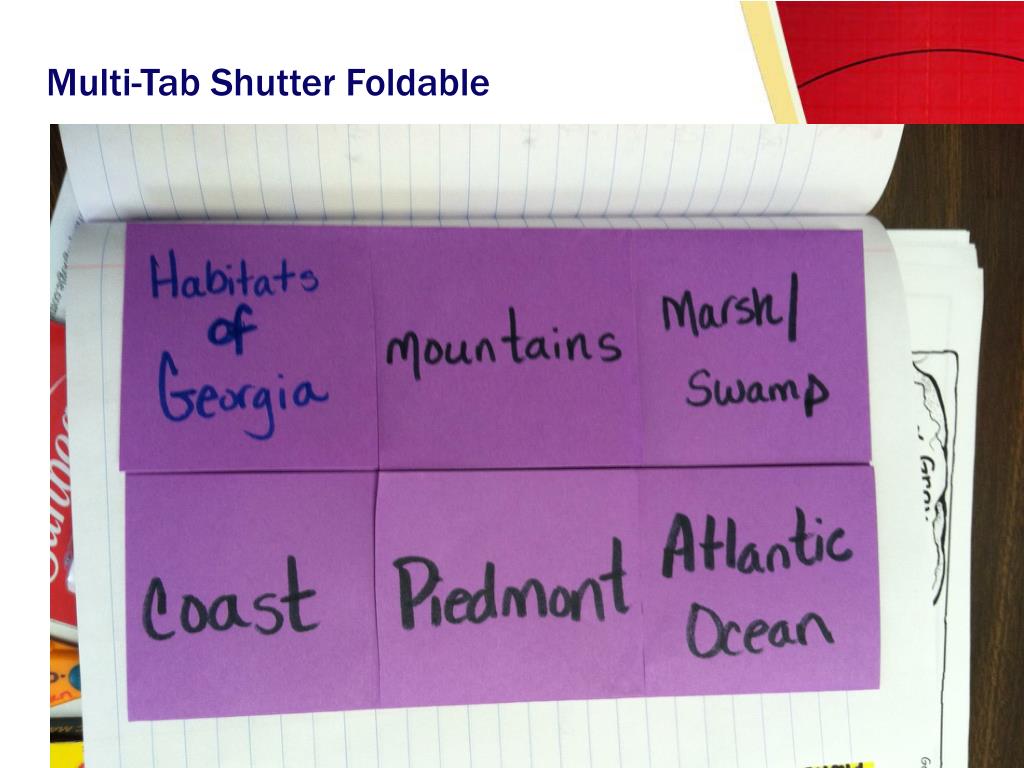 Multi-Tab Shutter Foldable
Habitats
of
Georgia
mountains
Marsh/
Swamp
Coast
Piedmont
Atlantic
Ocean